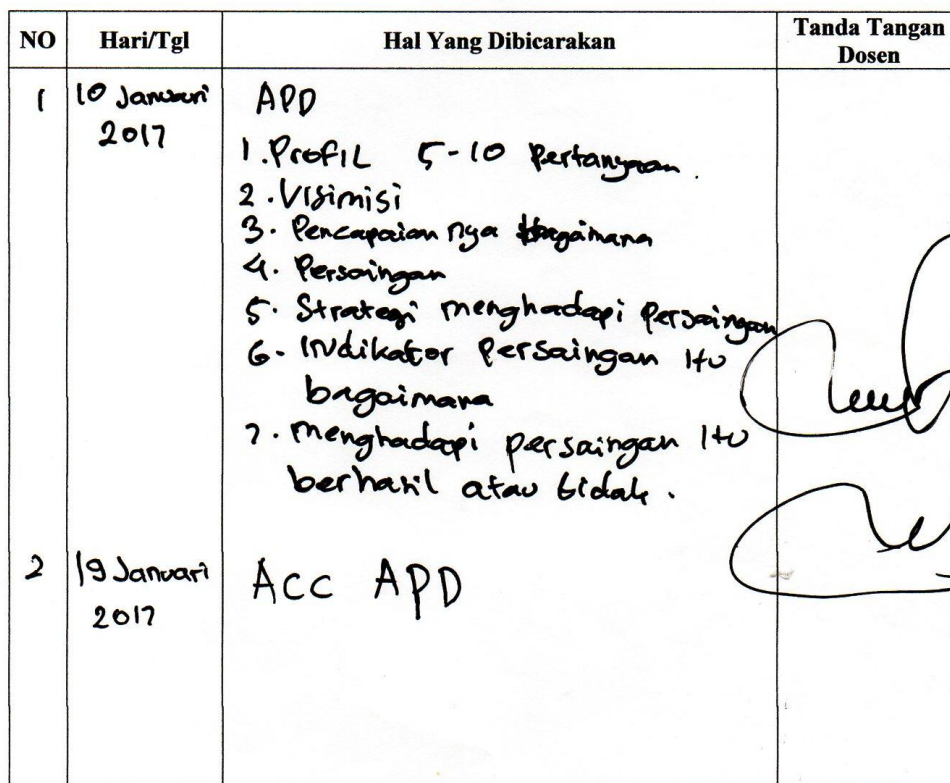 NO Hari/Tgl Hal Yang Dibicarakan Tanda Tangan
Dosen
1 10 Januari APD
2017
1. Profil 5-10 Pertanyaan.
2. Visimisi
3. Pencapaian nya bagaimana
4. Persaingan
5. Strategi menghadapi Persaingan
6. Indikator Persaingan Itu
bagaimana
7. menghadapi persaingan Itu
berhasil atau tidak.
2 19 Januari Acc APD
2017